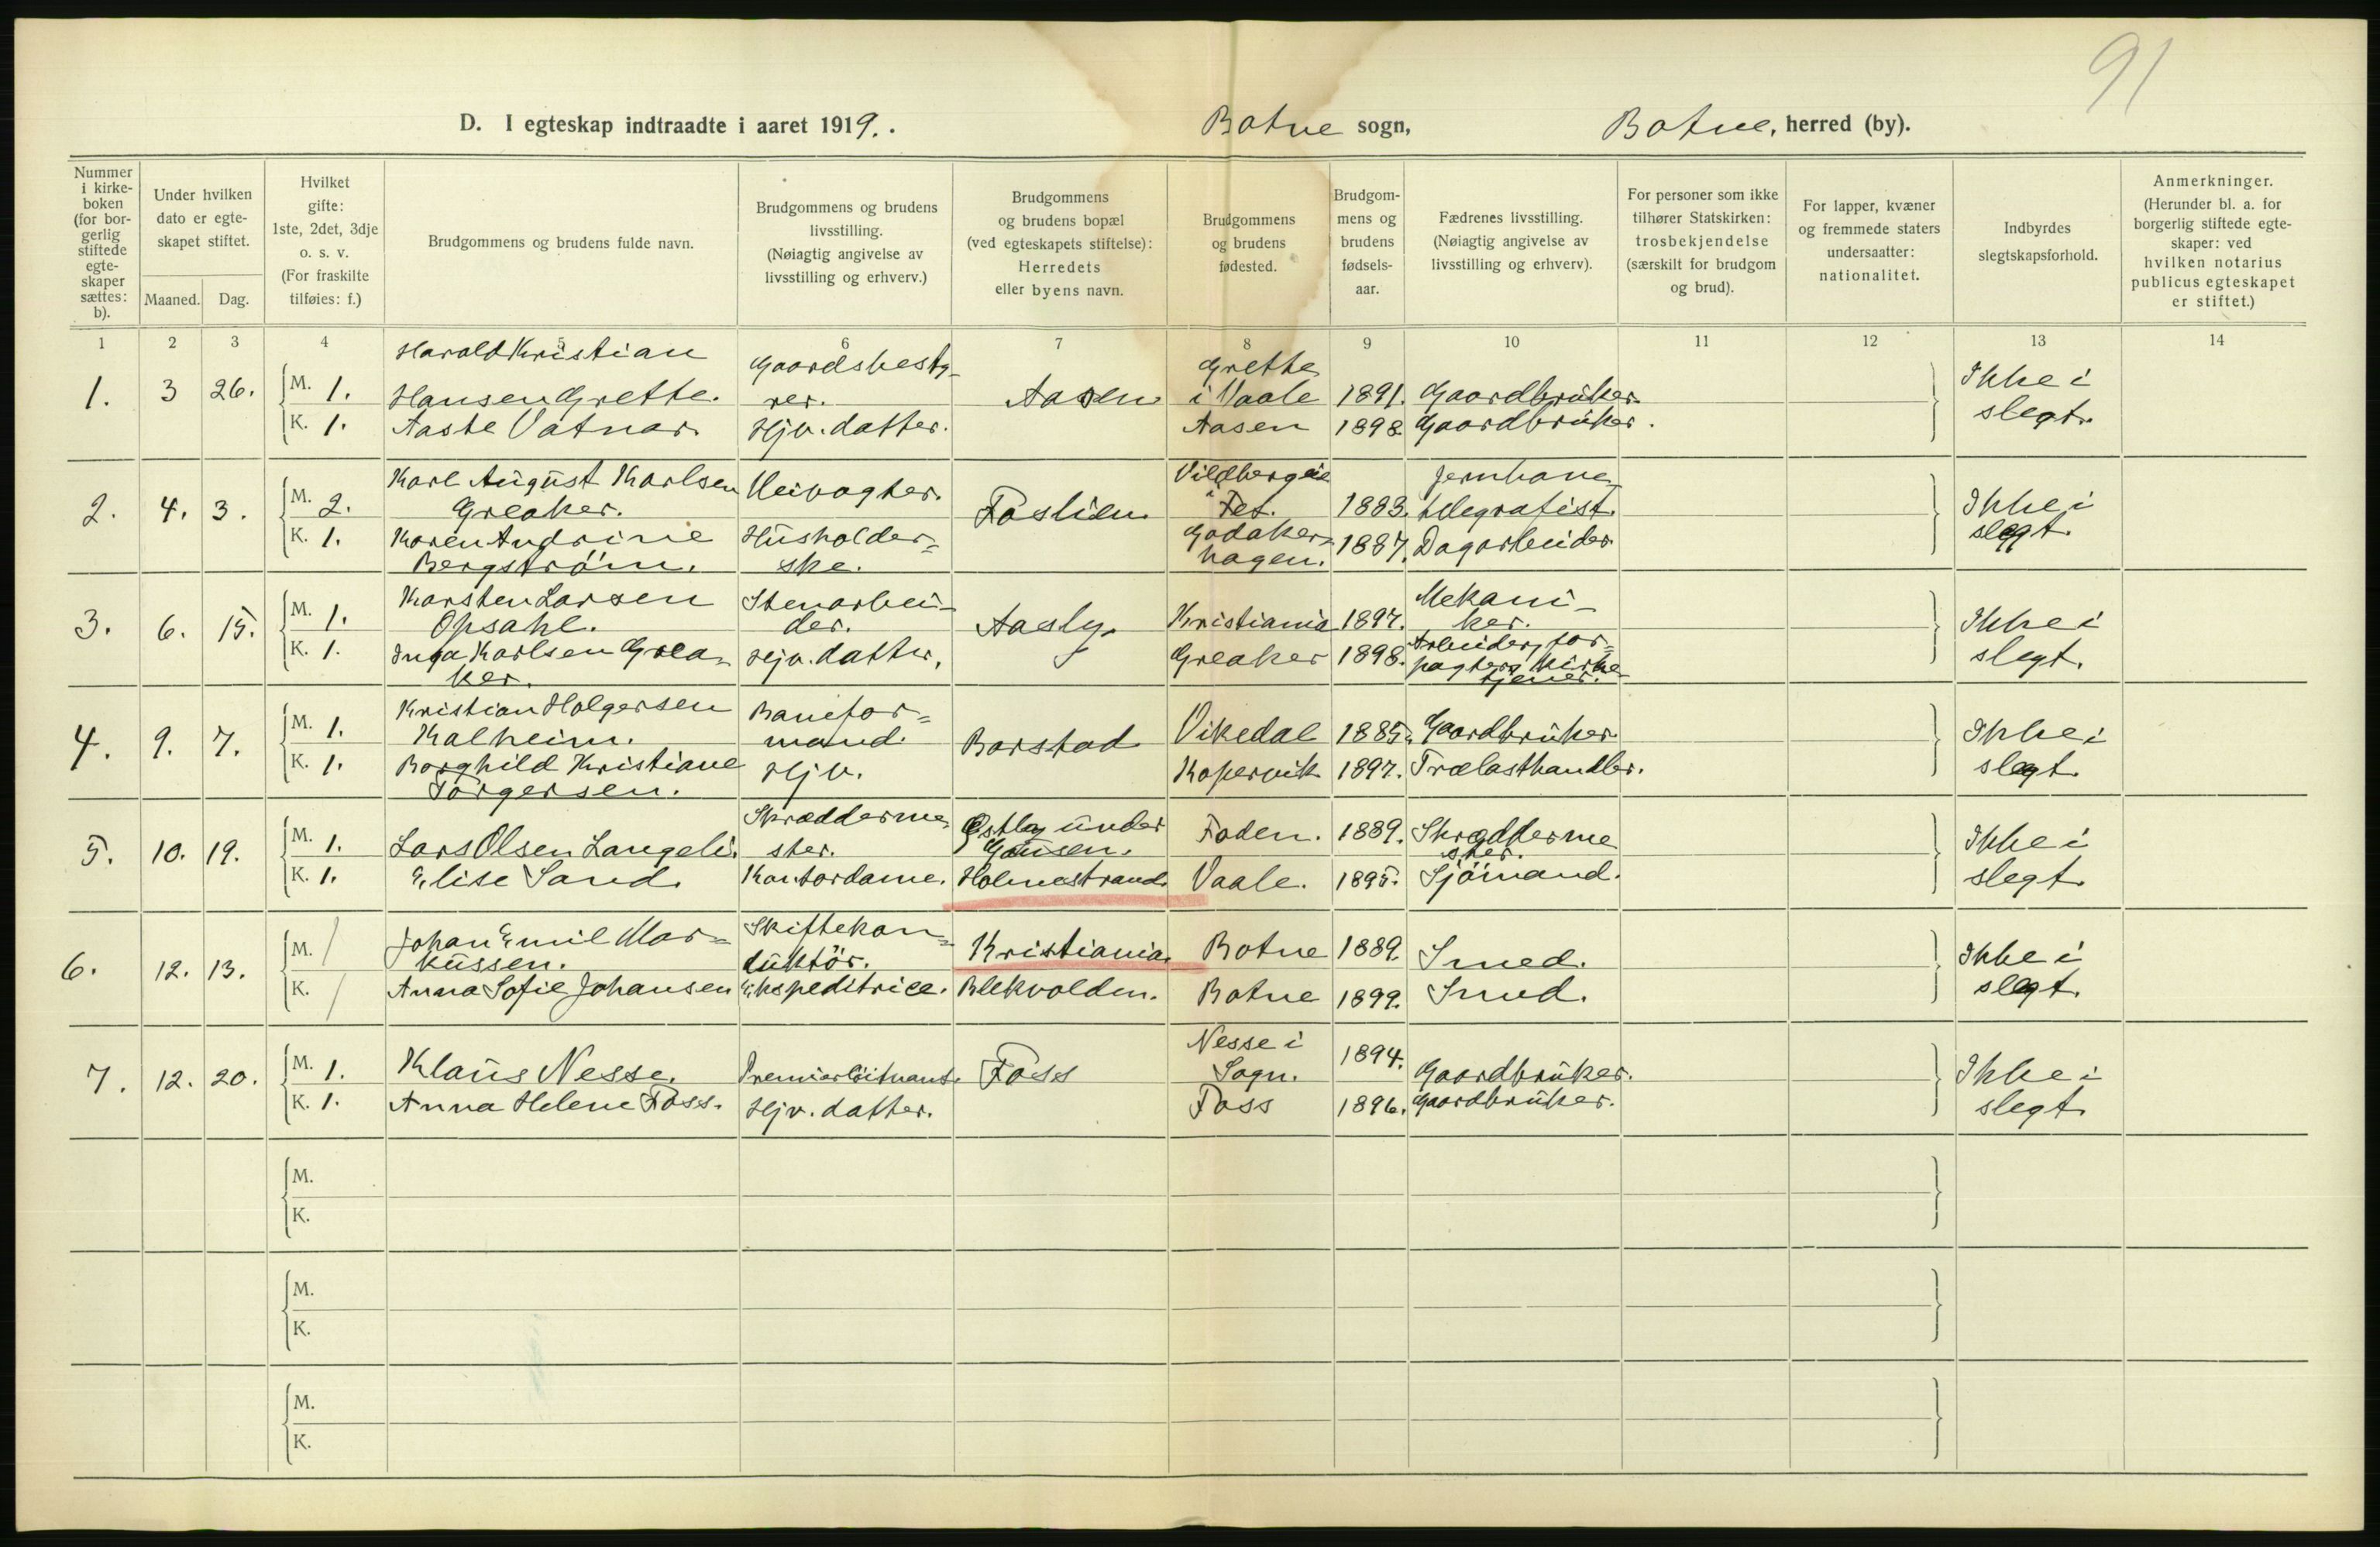 91
D. I egteskap indtraadte i aaret 1919. . Botne sogn, Botne, herred (by).
Nummer i kirke-boken (for bor-gerlig stiftede egte-skaper sættes: b).
Under hvilken dato er egte-skapet stiftet.
Maaned. Dag.
Hvilket gifte: 1ste, 2det, 3dje o. s. v. (For fraskilte tilføies: f.)
Brudgommens og brudens fulde navn.
Brudgommens og brudens livsstilling. (Nøiagtig angivelse av livsstilling og erhverv.)
Brudgommens og brudens bopæl (ved egteskapets stiftelse): Herredets eller byens navn.
Brudgommens og brudens fødested.
Brudgom-mens og brudens fødsels-aar.
Fædrenes livsstilling. (Nøiagtig angivelse av livsstilling og erhverv).
For personer som ikke tilhører Statskirken: trosbekjendelse (særskilt for brudgom og brud).
For lapper, kvæner og fremmede staters undersaatter: nationalitet.
Indbyrdes slegtskapsforhold.
Anmerkninger. (Herunder bl. a. for borgerlig stiftede egte-skaper: ved hvilken notarius publicus egteskapet er stiftet.)
1 2 3 4 5 6 7 8 9 10 11 12 13 14
1. 3 26. M. 1. Harald Kristian Hansen Grette. Gaardsbesty-rer. Aasen Grette i Vaale 1891. Gaardbruker. Ikke i slegt.
K. 1. Aaste Vatnar. Hjv. datter. Aasen 1898. Gaardbruker.
2. 4. 3. M. 2. Karl August Karlsen Greaker. Veivogter. Foslien Fet. 1883. Jernbane telegrafist. Ikke i slegt.
K. 1. Karen Andrine Bergström. Husholder=ske. Godaker=hagen. 1887. Dagarbeider
3. 6. 15. M. 1. Karsten Larsen Opsahl. Stenarbei-der. Aasly. Kristiania 1897. Mekani-ker. Ikke i slegt.
K. 1. Inga Karlsen Grea-ker. Hjv. datter. Greaker 1898. Arbeider, for=pagter, kirke-tjener.
4. 9. 7. M. 1. Kristian Holgersen Kalheim. Banefor=mand. Barstad Vikedal 1885. Gaardbruker. Ikke i slegt.
K. 1. Borghild Kristiane Torgersen. Hjv. Kopervik 1897. Trælasthandler.
5. 10. 19. M. 1. Lars Olsen Langeli. Skrædderme-ster. Østby under Gausen. Foden. 1889. Skrædderme ster. Ikke i slegt.
K. 1. Elise Sand. Kontordame. Holmestrand. Vaale. 1895. Sjömand.
6. 12. 13. M. / Johan Emil Mar=kussen. Skiftekon=duktör. Kristiania. Botne 1889. Smed. Ikke i slegt.
K. / Anna Sofie Johansen Ekspeditrice. Blekvolden. Botne 1899. Smed.
7. 12. 20. M. 1. Klaus Nesse. Premierlöitnant. Foss Nesse i Sogn. 1894. Gaardbruker. Ikke i slegt.
K. 1. Anna Helene Foss. Hjv. datter. Foss 1896. Gaardbruker.
M.
K.
M.
K.
M.
K.